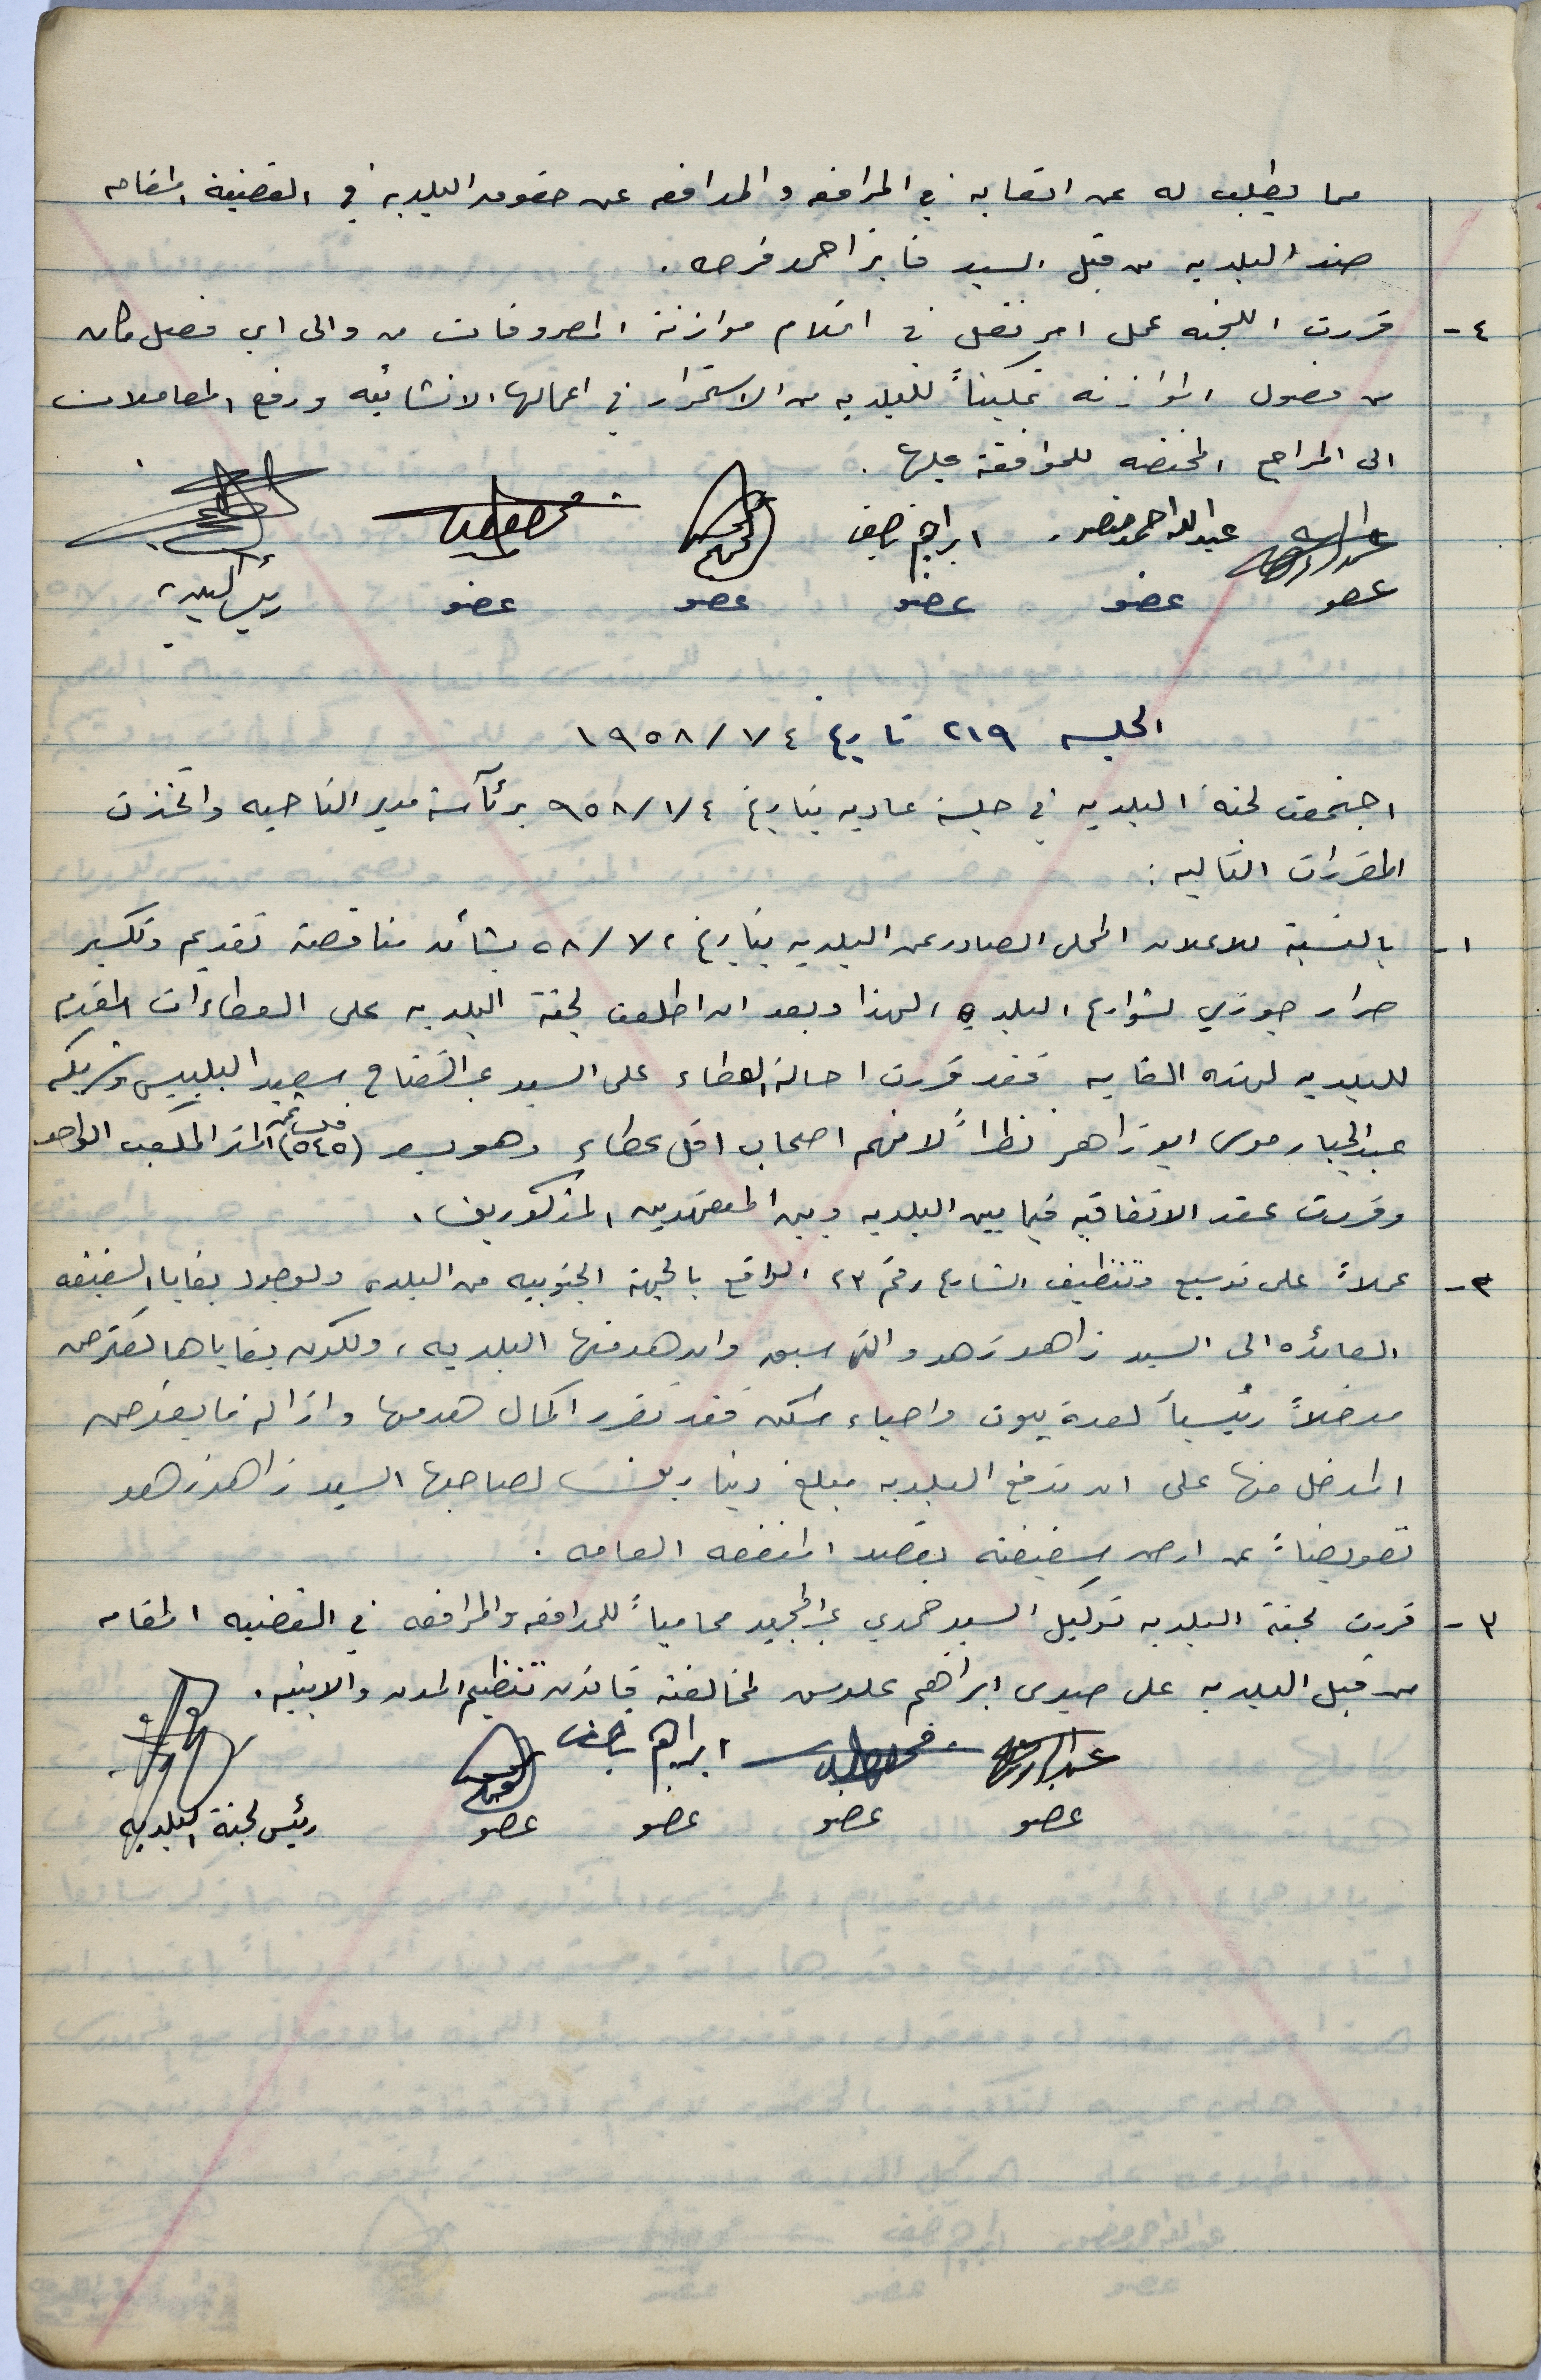 مما يطلب له عن اتعابه في المرافعه والمدافعه عن حقوق البلديه في القضية المقامه
ضد البلديه من قبل السيد فايز احمد فرحه .
٤- قررت اللجنه عمل امر نقل في اقلام موازنة المصروفات من والى اي فصل كان
من فصول الموازنه تمكيناً للبلديه من الاستمرار في اعمالها الانشائيه ورفع المعاملات
الى المراجع المختصه للموافقة عليها .
عبدالله احمد منصور ابراهيم ناصيف
عضو عضو عضو عضو عضو رئيس البلدية
الجلسه ٢١٩ تاريخ ١٩٥٨/١/٤
اجتمعت لجنة البلديه في جلسة عاديه بتاريخ ٩٥٨/١/٤ برئآسة مدير الناحيه واتخذت
المقررات التاليه :
١- بالنسبة للاعلان المحلي الصادر عن البلديه بتاريخ ٥٨/١/٢ بشأن مناقصة تقديم وتكسير
حرار جوزي لشوارع البلديه ، لهذا وبعد ان اطلعت لجنة البلديه على العطاءات المقدمه
للبلديه لهذه الغايه فقد قررت احالة العطاء على السيد عبد الفتاح سعيد البلبيسي وشريكه
عبدالجبار موسى ابو زاهر نظراً لانهم اصحاب اقل عطاء وهو بسعر (٥٤٥) فلساً ثمن المتر المكعب الواحد
وقررت عقد الاتفاقيه فيما بين البلديه وبين المتعهدين المذكورين .
٢- عملاً على توسيع وتنظيف الشارع رقم ٢٣ الواقع بالجهة الجنوبيه من البلده ولوجود بقايا السقيفه
العائده الى السيد زاهد زهد والتي سبق وان هدمتها البلديه ، ولكون بقاياها تعترض
مدخلاً رئيسياً لعدة بيوت واحياء سكن فقد تقرر اكمال هدمها وازالة ما يعترض
المدخل منها على ان تدفع البلديه مبلغ دينارين لصاحبها السيد زاهد زهد
تعويضاً عن ارض سقيفته بقصد المنفعه العامه .
٣- قررت لجنة البلديه توكيل السيد حمدي عبد المجيد محامياً للمدافعه والمرافعه في القضيه المقامه
من قبل البلديه على صبري ابراهيم علوس لمخالفته قانون تنظيم المدن والابنيه .
ابراهيم ناصيف
عضو عضو عضو عضو رئيس لجنة البلديه